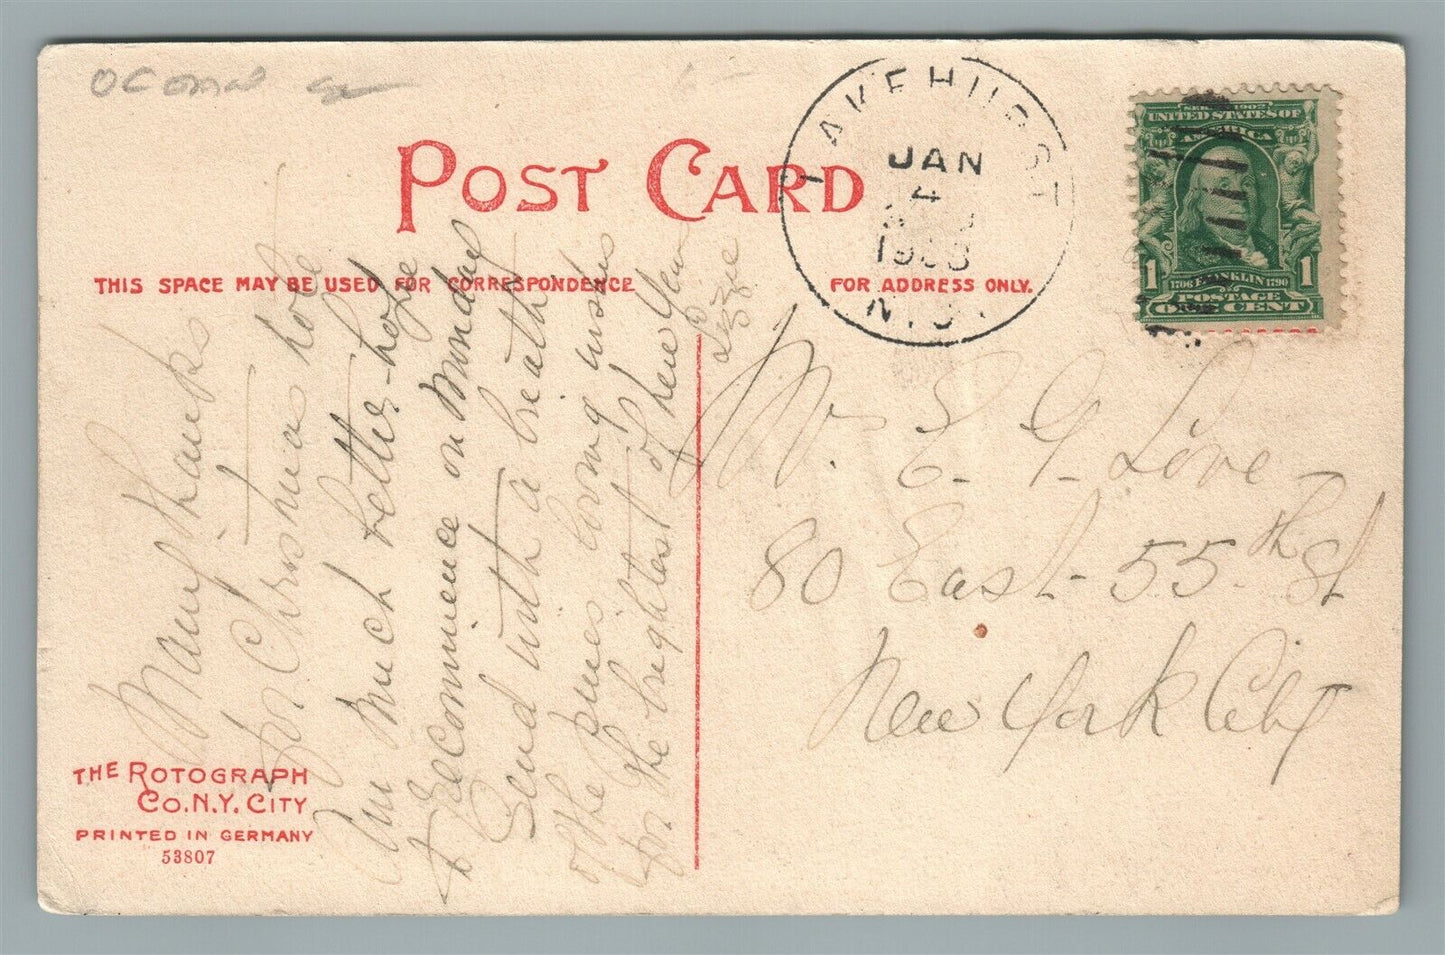 POST CARD
THIS SPACE MAY BE USED FOR CORRESPONDENCE
FOR ADDRESS ONLY.
LAKEHURST
JAN
4
1908
N.J.
SER 1902
UNITED STATES OF
AMERICA
1 1706 FRANKLIN 1790 1
POSTAGE
ONE CENT
Many thanks
for Christmas
Am Much better - hope
to Commence on Monday
Send with a breath
of the pines loving wishes
for the brightest of New Years
Lizzie
Mr. E. G. Love -
80 East - 55th St
New York City
THE ROTOGRAPH
CO. N.Y. CITY
PRINTED IN GERMANY
53807